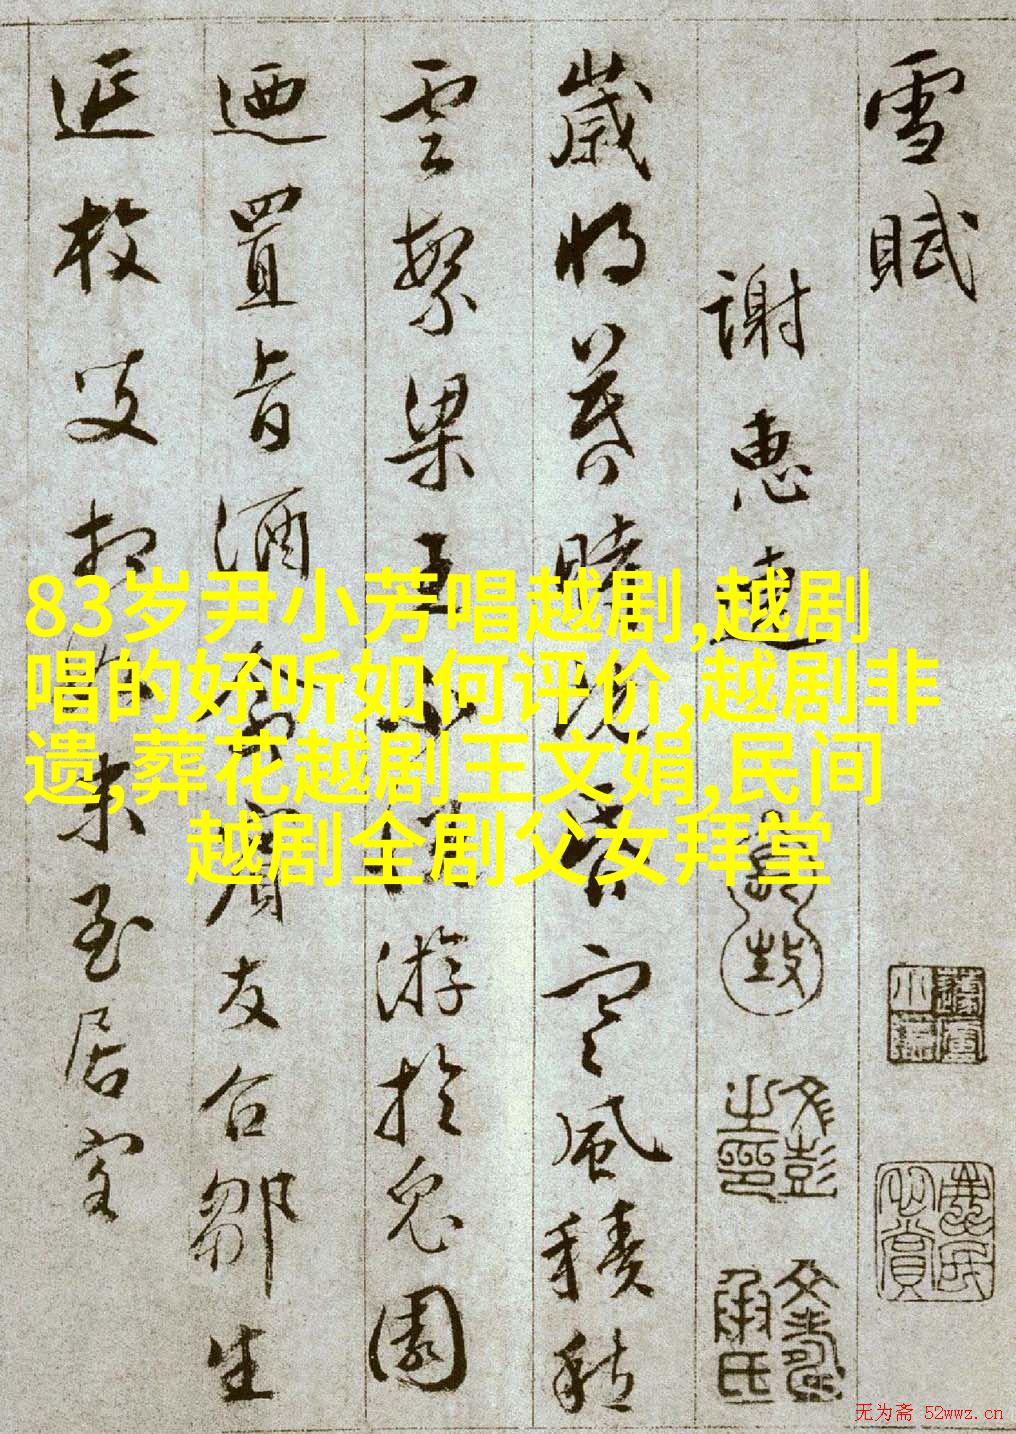 雪賦
謝惠連
歲将暮時既昏寒風積愁
雲繁梁王不悦游於兔園
迺置旨酒命賓友召鄒生
延枚叟相如末至居客
83岁尹小芳唱越剧,越剧
唱的好听如何评价,越剧非
遗,葬花越剧王文娟,民间
越剧全剧父女拜堂
文彭之印
无为斋 52wwz.cn